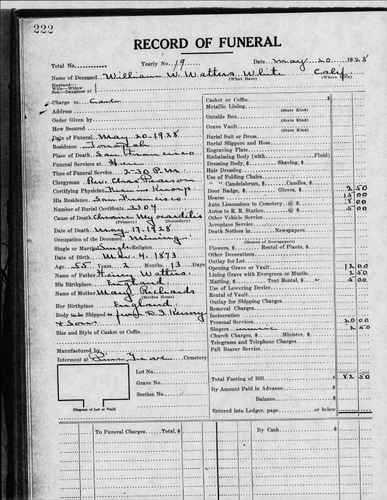 222
RECORD OF FUNERAL
Total No. Yearly No. 19 Date May 20 1928
Name of Deceased William W. Watters White Calif
Husband (What Race) (Where
Wife—Widow
Son—Daughter of
Charge to
Address
Order Given by
How Secured
Date of Funeral May 20-1928
Residence Tonopah
Place of Death San Francisco
Funeral Services at Here
Time of Funeral Service 2-30 P.M.
Clergyman Rev. Chas.
Certifying Physician
His Residence San Francisco
Number of Burial Certificate 2309
Cause of Death Chronic Myocarditis
(Primary) (Secondary)
Date of Death May 17-1928
Occupation of the Deceased Mining
Single or Married Single Religion
Date of Birth Nov. 4-1873
Age 55 Years Months 13 Days
Name of Father Henry Watters
His Birthplace England
Name of Mother Mary Richards
(Maiden Name)
Her Birthplace England
Body to be Shipped to
& Sons
Size and Style of Casket or Coffin
Manufactured by
Interment at Cemetery
Lot No.
Grave No.
Section No.
Diagram of Lot or Vault
Casket or Coffin
Metallic Lining
(State Kind)
Outside Box
(State Kind)
Grave Vault
(State Kind)
Burial Suit or Dress
Burial Slippers and Hose
Engraving Plate
Embalming Body (with
Dressing Body, $ Shaving, $
Hair Dressing
Use of Folding Chairs
" " Candelabrum, $ Candles, $
Door Badge, $ Gloves, $ 2 50
Hearse 15 00
Auto Limousines to Cemetery, @ $ 15 00
Autos to R. R. Station, @ $ 5 00
Other Vehicle Service
Aeroplane Service
Death Notices in Newspapers
(Names of Newspapers)
Flowers, $ Rental of Plants, $
Other Decorations
Outlay for Lot
Opening Grave or Vault 12 00
Lining Grave with Evergreen or Muslin 2 50
Matting, $ Tent Rental, $ 5 00
Use of Lowering Device
Rental of Vault
Outlay for Shipping Charges
Removal Charges
Incineration
Personal Services 20 00
Singers music
Church Charges, $ Minister, $
Telegrams and Telephone Charges
Pall Bearer Service
Total Footing of Bill $ 82 50
By Amount Paid in Advance $
Balance $
Entered into Ledger, page or below $
To Funeral Charges Total, $
By Cash $